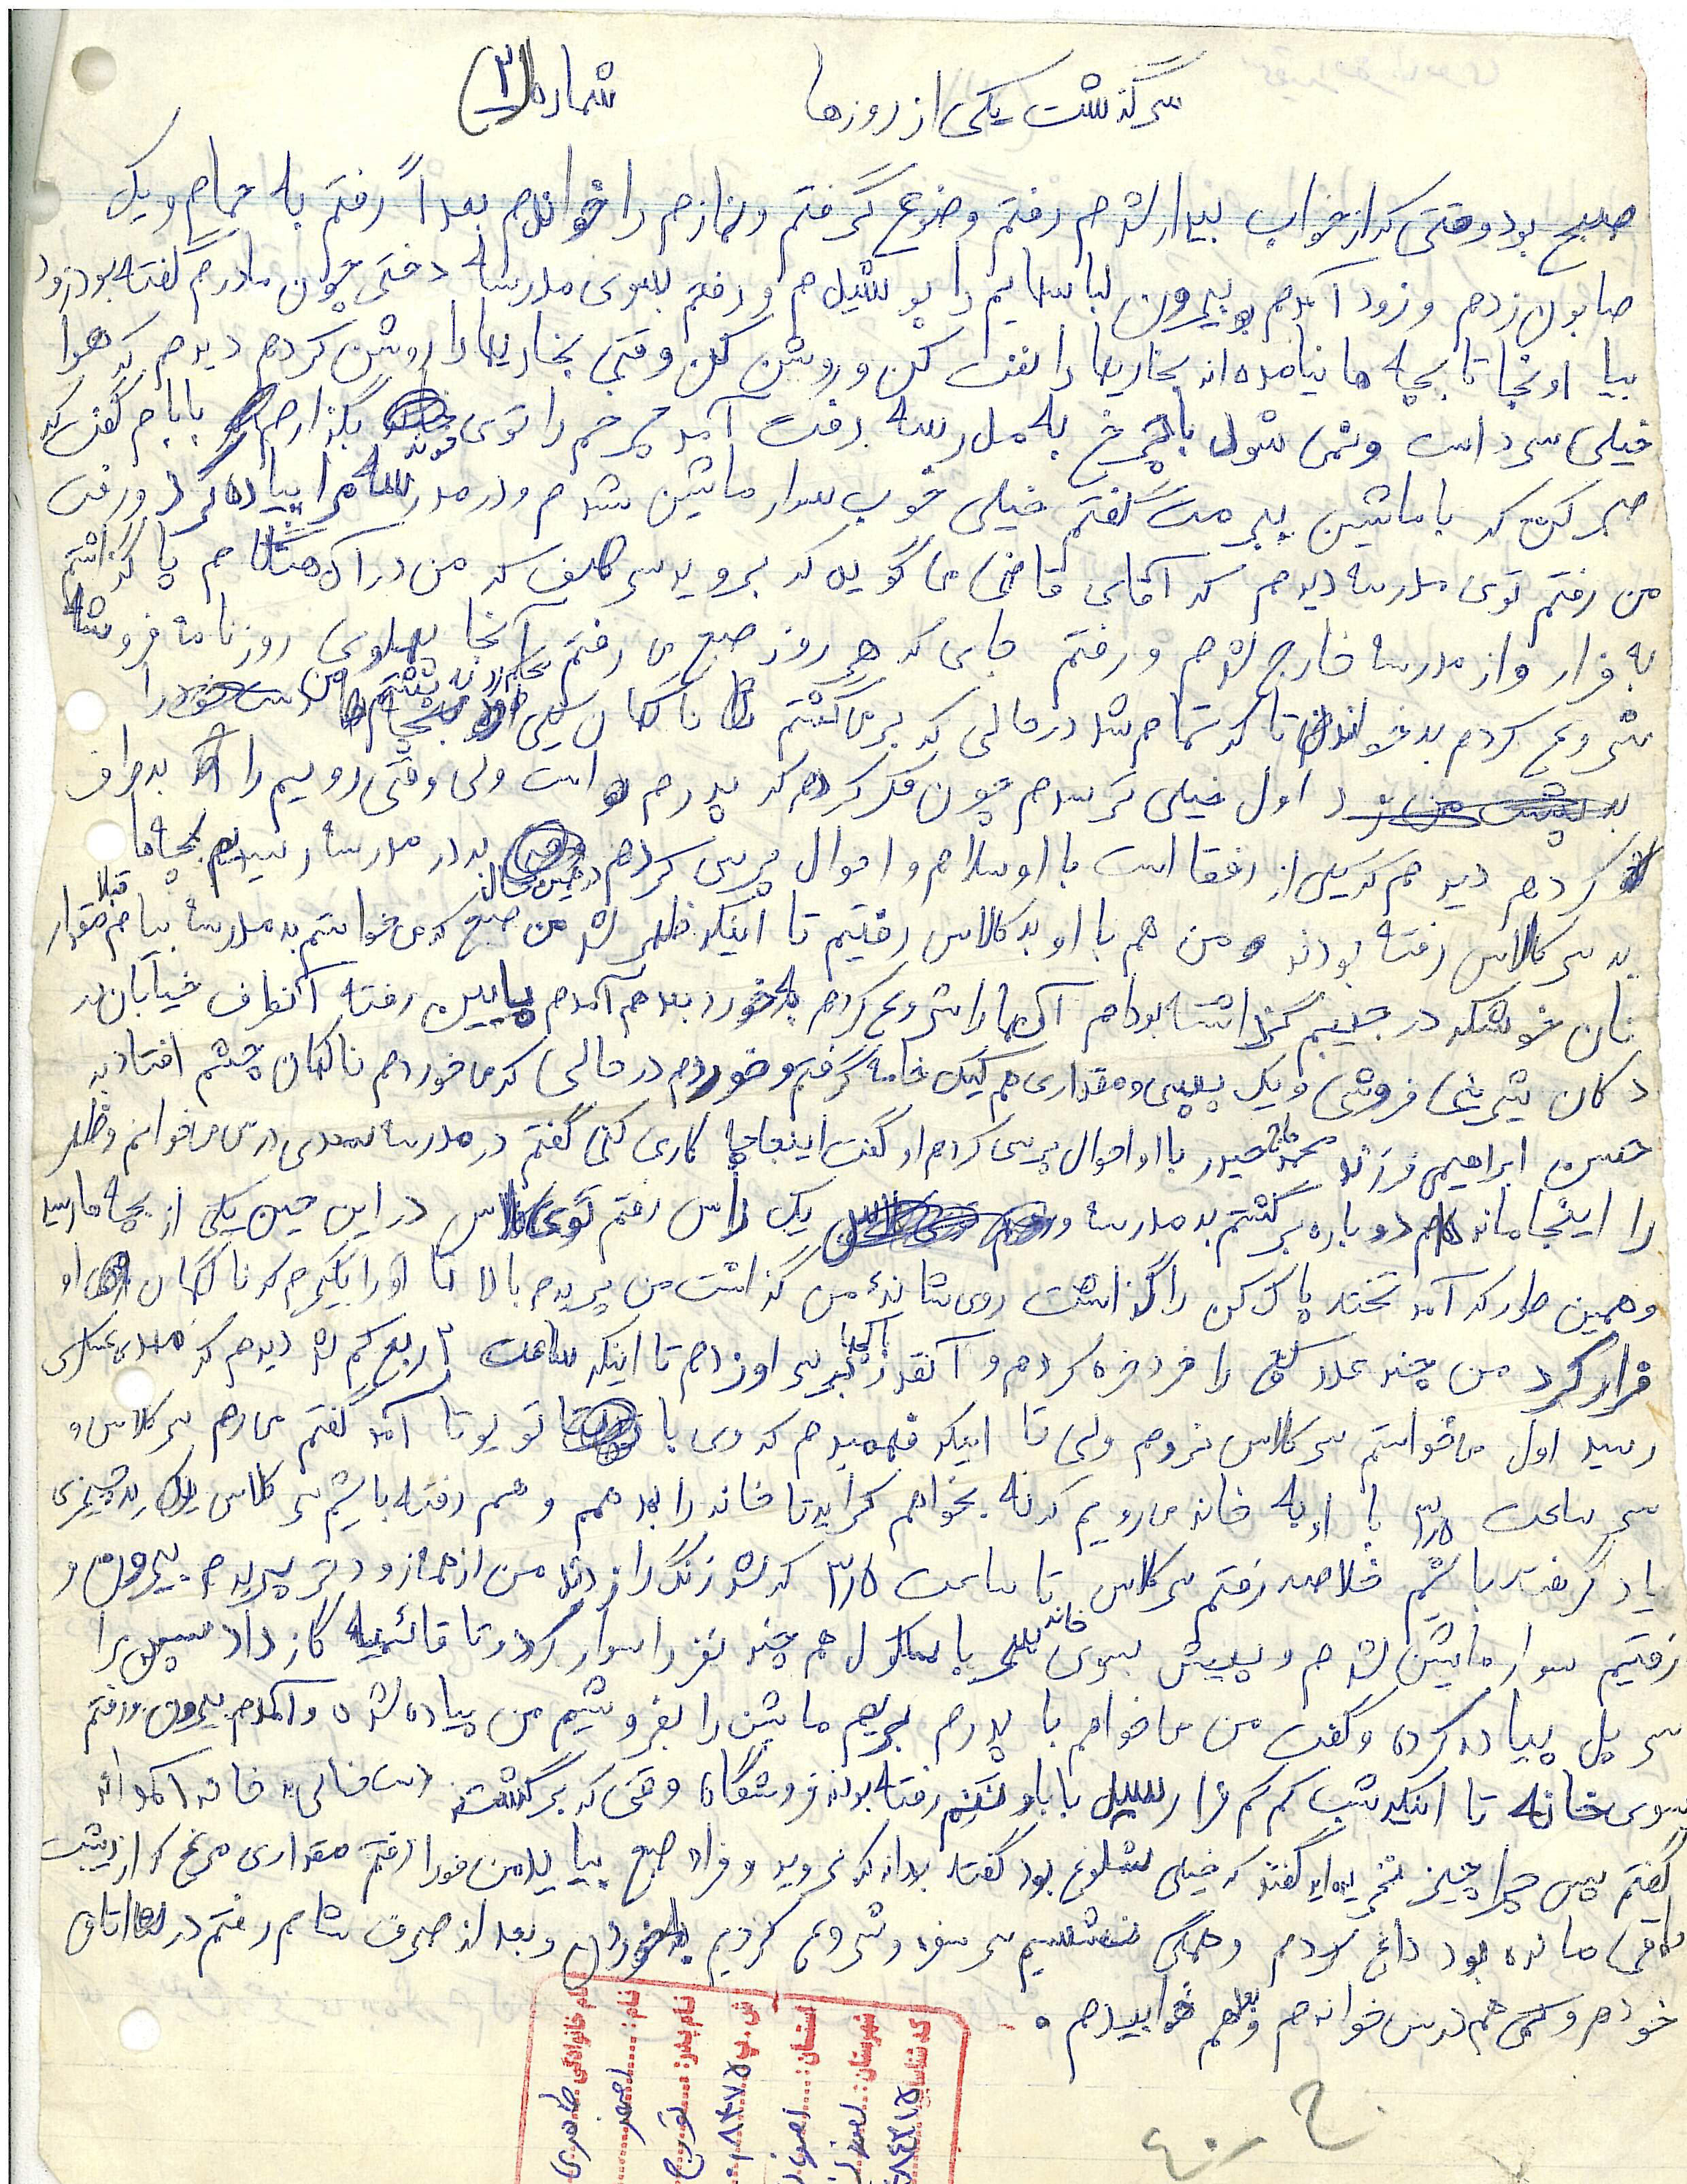 سرگذشت یکی از روزها شماره (۳)
صبح بود وقتی که از خواب بیدار شدم رفتم وضوع گرفتم و نمازم را خواندم بعداً رفتم به حمام و یک
صابون زدم و زود آمدم بیرون لباسهایم را پوشیدم و رفتم بسوی مدرسه دختی چون مادرم گفته بود زود
بیا اونجا تا بچه ها نیامده اند بخاریها را نفت کن و روشن کن وقتی بخاریها را روشن کردم دیدم که هوا
خیلی سرد است و نمی شود با چرخ به مدرسه رفت آمد چرخم را توی خونه بگذارم بابام گفت که
صبر کن که با ماشین ببرمت گفتم خیلی خوب سوار ماشین شدم و در مدرسه مرا پیاده کرد و رفت
من رفتم توی مدرسه دیدم که آقای قاضی می گوید که بروید سر صف که من در آن هنگام پا گذاشتم
به فرار و از مدرسه خارج شدم و رفتم جایی که هر روز صبح می رفتم آنجا پهلوی روزنامه فروشه
شروع کردم به خواندن تا که تمام شد در حالی که برمی گشتم ناگهان یکی محکم زد به پشتم من را
اول خیلی ترسیدم چون فکر کردم که پدرم است ولی وقتی رویم را به طرف
او کردم دیدم که یکی از رفقا است با او سلام و احوال پرسی کردم در همین حال به در مدرسه رسیدیم بچه ها
به سر کلاس رفته بودند و من هم با او به کلاس رفتیم تا اینکه ظهر شد من صبح که می خواستم به مدرسه بیام قبلا مقدار
نان خوشکه در جیبم گذاشته بودم آن ها را شروع کردم به خورد بعد هم آمدم پایین رفته آنطرف خیابان در
دکان شیرینی فروشی و یک پپسی و مقداری هم کیک خامه گرفتم و خوردم در حالی که می خوردم ناگهان چشم افتاد به
حسن ابراهیمی فرزند محمد حیدر با او احوال پرسی کردم او گفت اینجا چه کاری کنی گفتم در مدرسه سعدی درس می خوانم و ظهر
را اینجا مانده ام دوباره برگشتم به مدرسه و یک راس رفتم توی کلاس در این حین یکی از بچه ها رسید
و همین طور که آمد تخته پاک کن را گذاشت روی شانه من گذاشت من پریدم بالا تا او را بگیرم که ناگهان او
فرار کرد من چند عدد گچ را خرد خره کردم و آنقدر با گچا به سر او زدم تا اینکه ساعت ۲ ربع کم شد دیدم که مهدی عسکری
رسید اول می خواستم سر کلاس نروم ولی تا اینکه فهمیدم که وی با تویوتا آمد گفتم می رم سر کلاس و
سر ساعت ۳/۵ با او به خانه می رویم که نه بخواهم کرایه تا خانه را بدهم و هم رفته باشم سر کلاس یک چیزی
یاد گرفته باشم خلاصه رفتم سر کلاس تا ساعت ۳/۵ که شد زنگ را زدند من از همه زودتر پریدم بیرون و
رفتیم سوار ماشین شدم و پیش بسوی خانه سر پل هم چند نفر را سوار کرد و تا قائمیه گاز داد سپس مرا
سر پل پیاده کرده و گفت من می خواهم با پدرم بریم ماشین را بفروشیم من پیاده شده و آمدم بیرون و رفتم
بسوی خانه تا اینکه شب کم کم فرا رسید بابا و ننم رفته بودند فروشگاه وقتی که برگشتند دست خالی به خانه آمدند
گفتم پس چرا چیز نخریده اید گفتند که خیلی شلوغ بود گفته بودند که بروید و فردا صبح بیایید من فورا رفتم مقداری مرغ که از دیشب
باقی مانده بود داغ کردم و همگی نشستیم سر سفره و شروع کردیم به خوردن و بعد از صرف شام رفتم در اتاق
خودم و کمی هم درس خواندم و بعد هم خوابیدم .
کد شناسایی
شهرستان:
استان: اصفهان
ش.پ: ۸۴۷۵
نام پدر: تورج
نام: اصغر
نام خانوادگی: طاهری